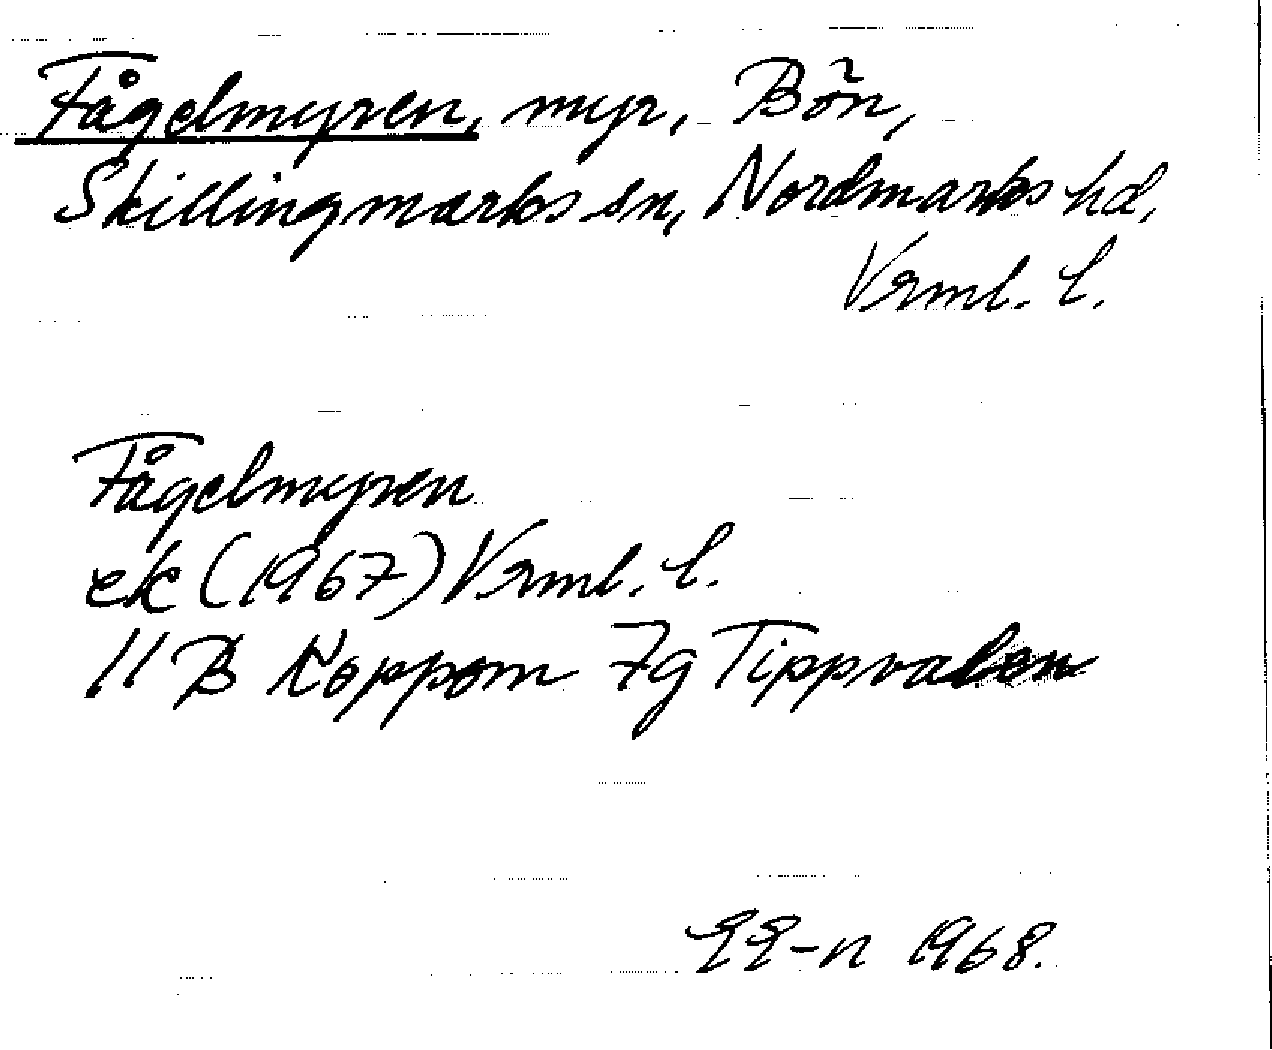 Fågelmyren, myr, Bön,
Skillingmarks sn, Nordmarks hd,
Vrml. l.
Fågelmyren
ek (1967) Vrml. l.
11 B Koppom 7g Tippvalen
EE-n 1968.